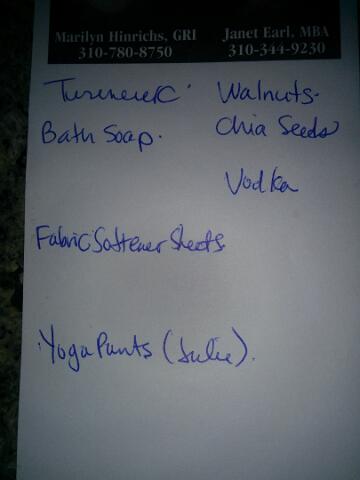 Marilyn Hinrichs, GRI Janet Earl, MBA
310-780-8750 310-344-9230
Turmeric Walnuts.
Bath Soap. Chia Seeds
Vodka
Fabric Softener Sheets
Yoga Pants (Julie).